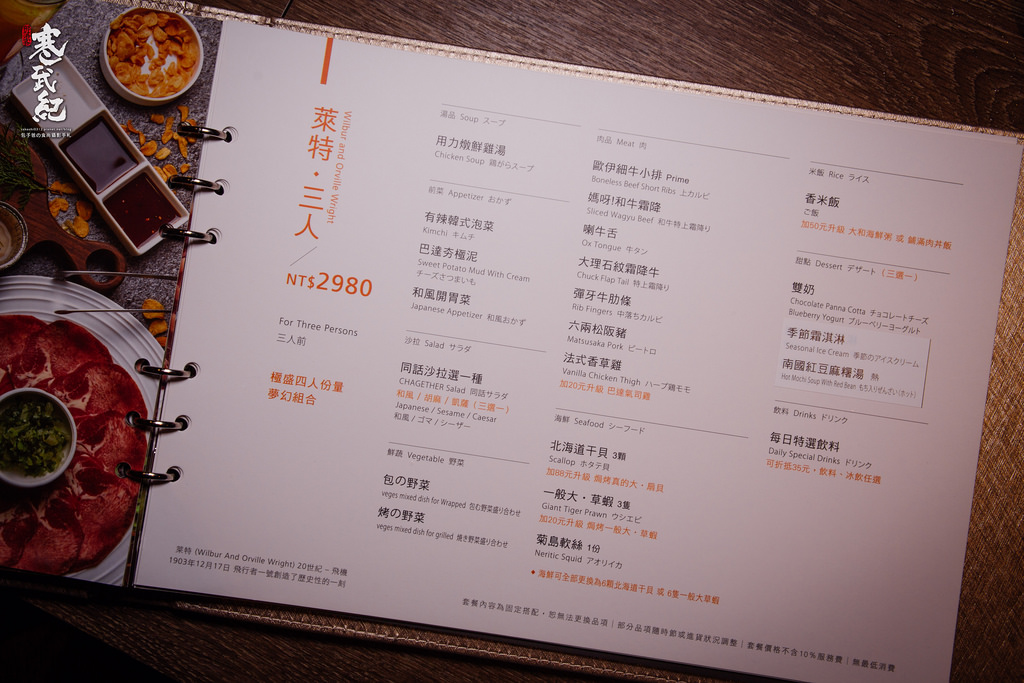 寒武紀
萊特・三人
Wilbur and Orville Wright
NT$2980
For Three Persons
三人前
極盛四人份量
夢幻組合
萊特 (Wilbur And Orville Wright) 20世紀 – 飛機
1903年12月17日 飛行者一號創造了歷史性的一刻
湯品 Soup スープ
用力燉鮮雞湯
Chicken Soup 鶏がらスープ
前菜 Appetizer おかず
有辣韓式泡菜
Kimchi キムチ
巴達夯極泥
Sweet Potato Mud With Cream
チーズさつまいも
和風開胃菜
Japanese Appetizer 和風おかず
沙拉 Salad サラダ
同話沙拉選一種
CHAGETHER Salad 同話サラダ
和風 / 胡麻 / 凱薩（三選一）
Japanese / Sesame / Caesar
和風 / ゴマ / シーザー
鮮蔬 Vegetable 野菜
包の野菜
veges mixed dish for Wrapped 包む野菜盛り合わせ
烤の野菜
veges mixed dish for grilled 焼き野菜盛り合わせ
肉品 Meat 肉
歐伊細牛小排 Prime
Boneless Beef Short Ribs 上カルビ
媽呀!和牛霜降
Sliced Wagyu Beef 和牛特上霜降り
喇牛舌
Ox Tongue 牛タン
大理石紋霜降牛
Chuck Flap Tail 特上霜降り
彈牙牛肋條
Rib Fingers 中落ちカルビ
六兩松阪豬
Matsusaka Pork ピートロ
法式香草雞
Vanilla Chicken Thigh ハーブ鶏モモ
加20元升級 巴達氣司雞
海鮮 Seafood シーフード
北海道干貝 3顆
Scallop ホタテ貝
加88元升級 焗烤真的大・扇貝
一般大・草蝦 3隻
Giant Tiger Prawn ウシエビ
加20元升級 焗烤一般大・草蝦
菊島軟絲 1份
Neritic Squid アオリイカ
● 海鮮可全部更換為6顆北海道干貝 或 6隻一般大草蝦
米飯 Rice ライス
香米飯
ご飯
加50元升級 大和海鮮粥 或 鋪滿肉丼飯
甜點 Dessert デザート（三選一）
雙奶
Chocolate Panna Cotta チョコレートチーズ
Blueberry Yogurt ブルーベリーヨーグルト
季節霜淇淋
Seasonal Ice Cream 季節のアイスクリーム
南國紅豆麻糬湯 熱
Hot Mochi Soup With Red Bean もち入りぜんざい（ホット）
飲料 Drinks ドリンク
每日特選飲料
Daily Special Drinks ドリンク
可折抵35元，飲料、冰飲任選
套餐內容為固定搭配，恕無法更換品項｜部分品項隨時節或進貨狀況調整｜套餐價格不含10%服務費｜無最低消費